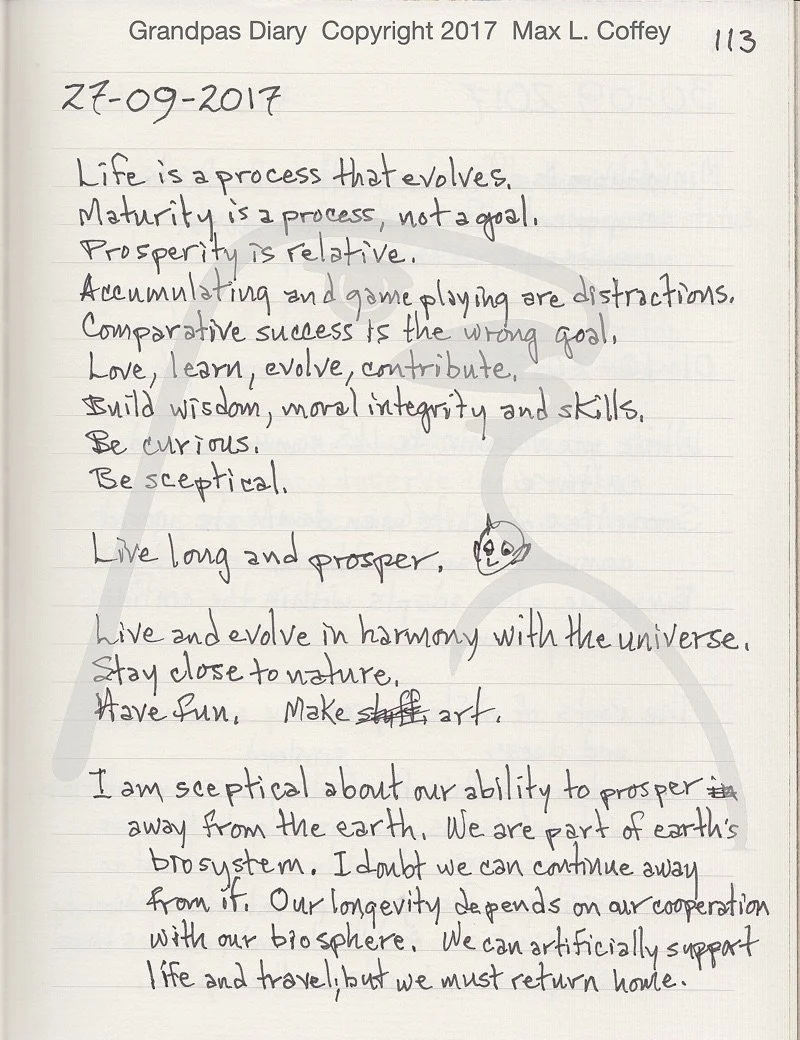 Grandpas Diary Copyright 2017 Max L. Coffey
113
27-09-2017
Life is a process that evolves.
Maturity is a process, not a goal.
Prosperity is relative.
Accumulating and game playing are distractions.
Comparative success is the wrong goal.
Love, learn, evolve, contribute.
Build wisdom, moral integrity and skills.
Be curious.
Be sceptical.
Live long and prosper.
Live and evolve in harmony with the universe.
Stay close to nature.
Have fun. Make stuff. art.
I am sceptical about our ability to prosper in
away from the earth. We are part of earth's
biosystem. I doubt we can continue away
from it. Our longevity depends on our cooperation
with our biosphere. We can artificially support
life and travel; but we must return home.